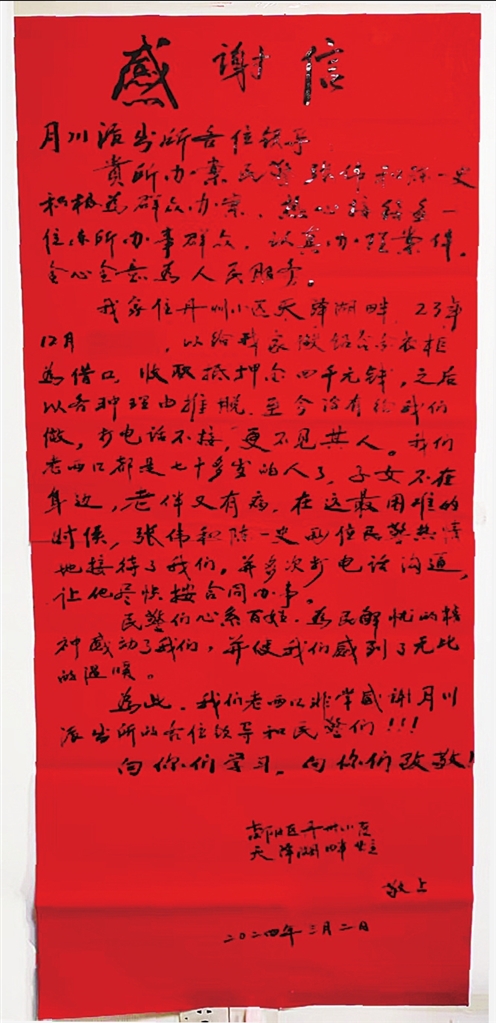 感谢信
月川派出所各位领导
贵所办案民警张伟和陈一史
积极为群众办案、热心接待每一
位来所办事群众,认真办理案件。
全心全意为人民服务。
我家住丹州小区天泽湖畔,23年
12月 ,以给我家做铝合金衣柜
为借口,收取抵押金四千元钱,之后
以各种理由推脱,至今没有给我们
做,打电话不接,更不见其人。我们
老两口都是七十多岁的人了,子女不在
身边,老伴又有病,在这最困难的
时候,张伟和陈一史两位民警热情
地接待了我们,并多次打电话沟通,
让他尽快按合同办事。
民警们心系百姓、为民解忧的精
神感动了我们,并使我们感到了无比
的温暖。
为此,我们老两口非常感谢月川
派出所的各位领导和民警们!!!
向你们学习,向你们致敬!
区丹州小区
天泽湖畔业主
敬上
二〇二四年三月二日